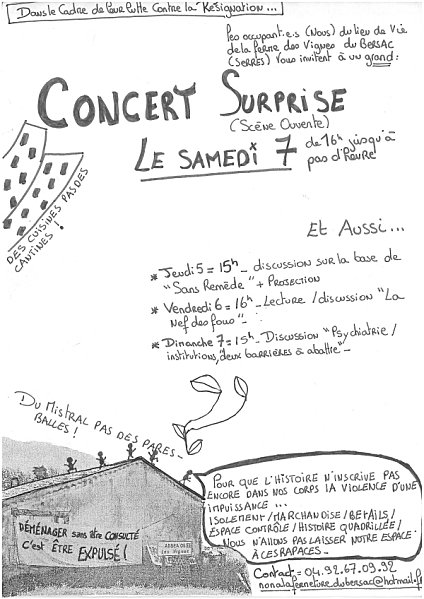 Dans le Cadre de Leur Lutte Contre la Résignation...
Les occupant.e.s (Nous) du lieu de Vie
de la ferme des Vignes du BERSAC
(SERRES) Vous invitent à un grand :
CONCERT SURPRISE
(Scène Ouverte)
LE SAMEDI 7 de 16h jusqu'à
pas d'heure
DES CUISINES PAS DES
CANTINES !
ET AUSSI...
* Jeudi 5 = 15h _ discussion sur la base de
"Sans Remède" + Projection
* Vendredi 6 = 16h _ Lecture / discussion "La
Nef des fous" _
* Dimanche 7 = 15h _ Discussion "Psychiatrie /
institutions, deux barrières à abattre" _
DU MISTRAL PAS DES PARES-
BALLES !
POUR QUE L'HISTOIRE N'INSCRIVE PAS
ENCORE DANS NOS CORPS LA VIOLENCE D'UNE
IMPUISSANCE ...
ISOLEMENT / MARCHANDISE / BÉTAILS /
ESPACE CONTRÔLÉ / HISTOIRE QUADRILLÉE /
NOUS N'ALLONS PAS LAISSER NOTRE ESPACE
À CES RAPACES _
DÉMÉNAGER sans être CONSULTÉ
c'est ÊTRE EXPULSÉ !
Les Vignes
Contact = 04.92.67.09.92
nonalafermeture.dubersac@hotmail.fr